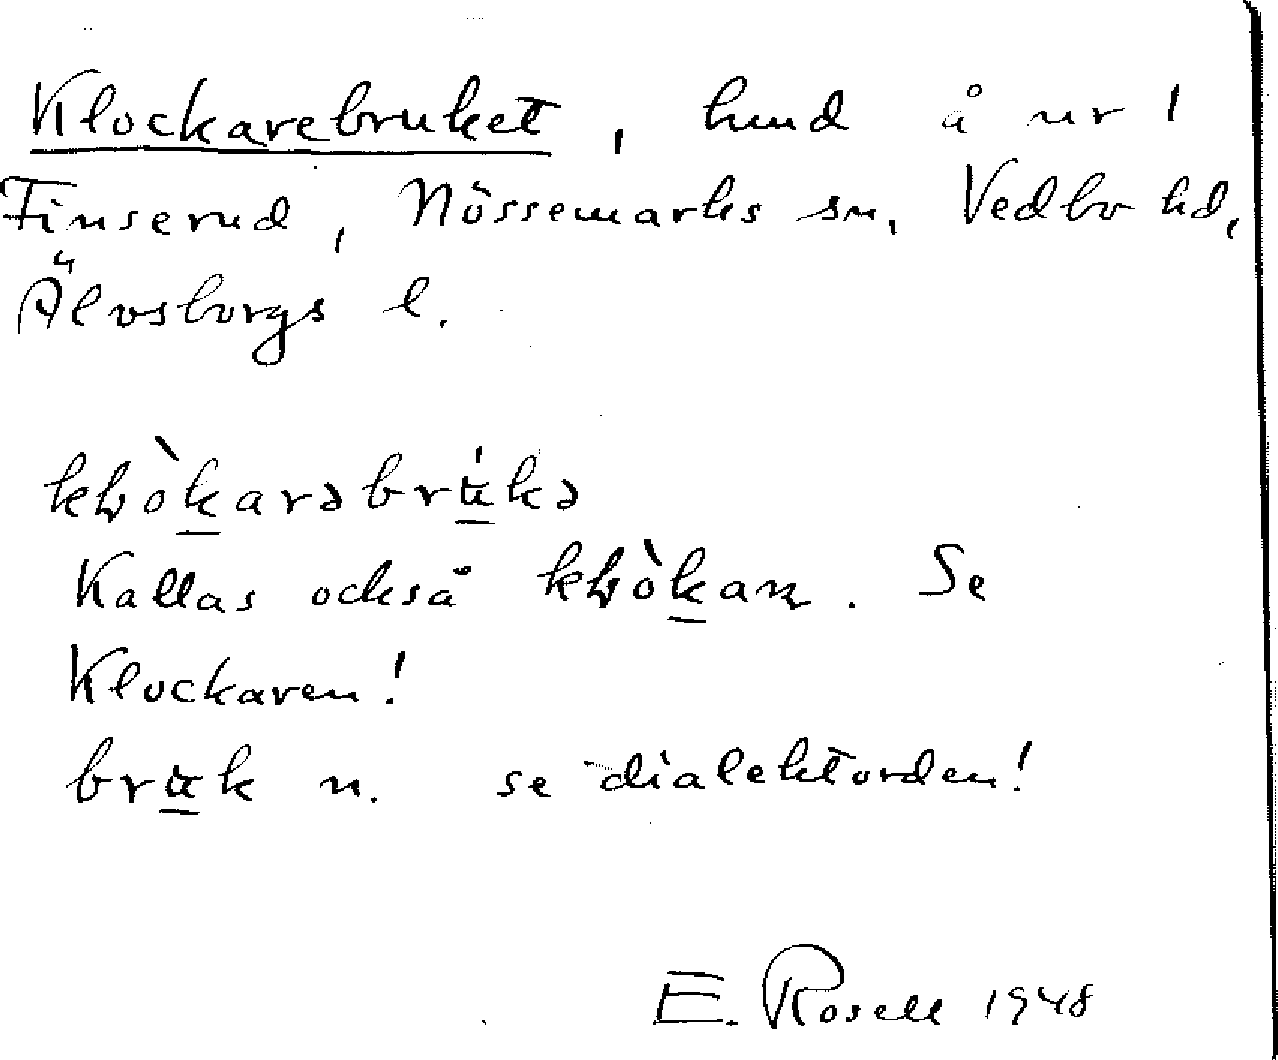 Klockarebruket, hmd å nr 1
Finserud, Nössemarks sn, Vedbo hd,
Älvsborgs l.
Kallas också . Se
Klockaren!
n. se dialektorden!
E. Rosell 1948